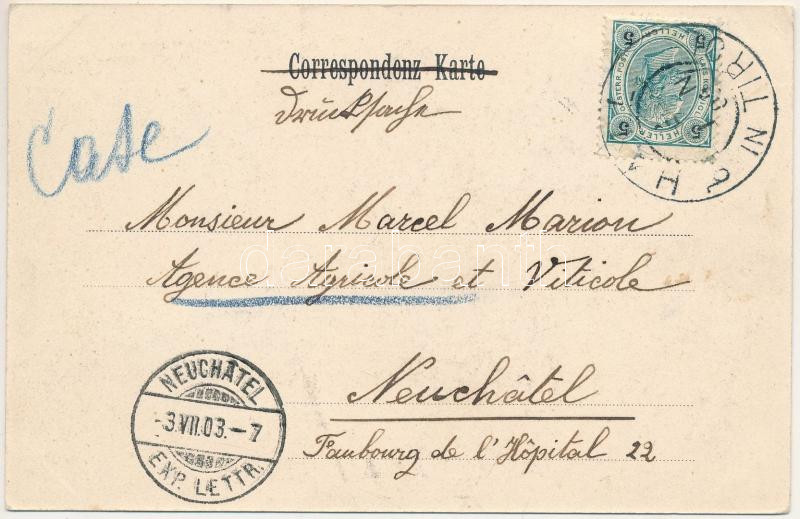 Correspondenz Karte
Drucksache
Case
Monsieur Marcel Marion
Agence Agricole et Viticole
Neuchâtel
Faubourg de l'Hôpital 22
NEUCHÂTEL
-3.VII.03.-7
EXP. LETTR.
5 HELLER 5
5 HELLER 5
IN TIROL
darabanth